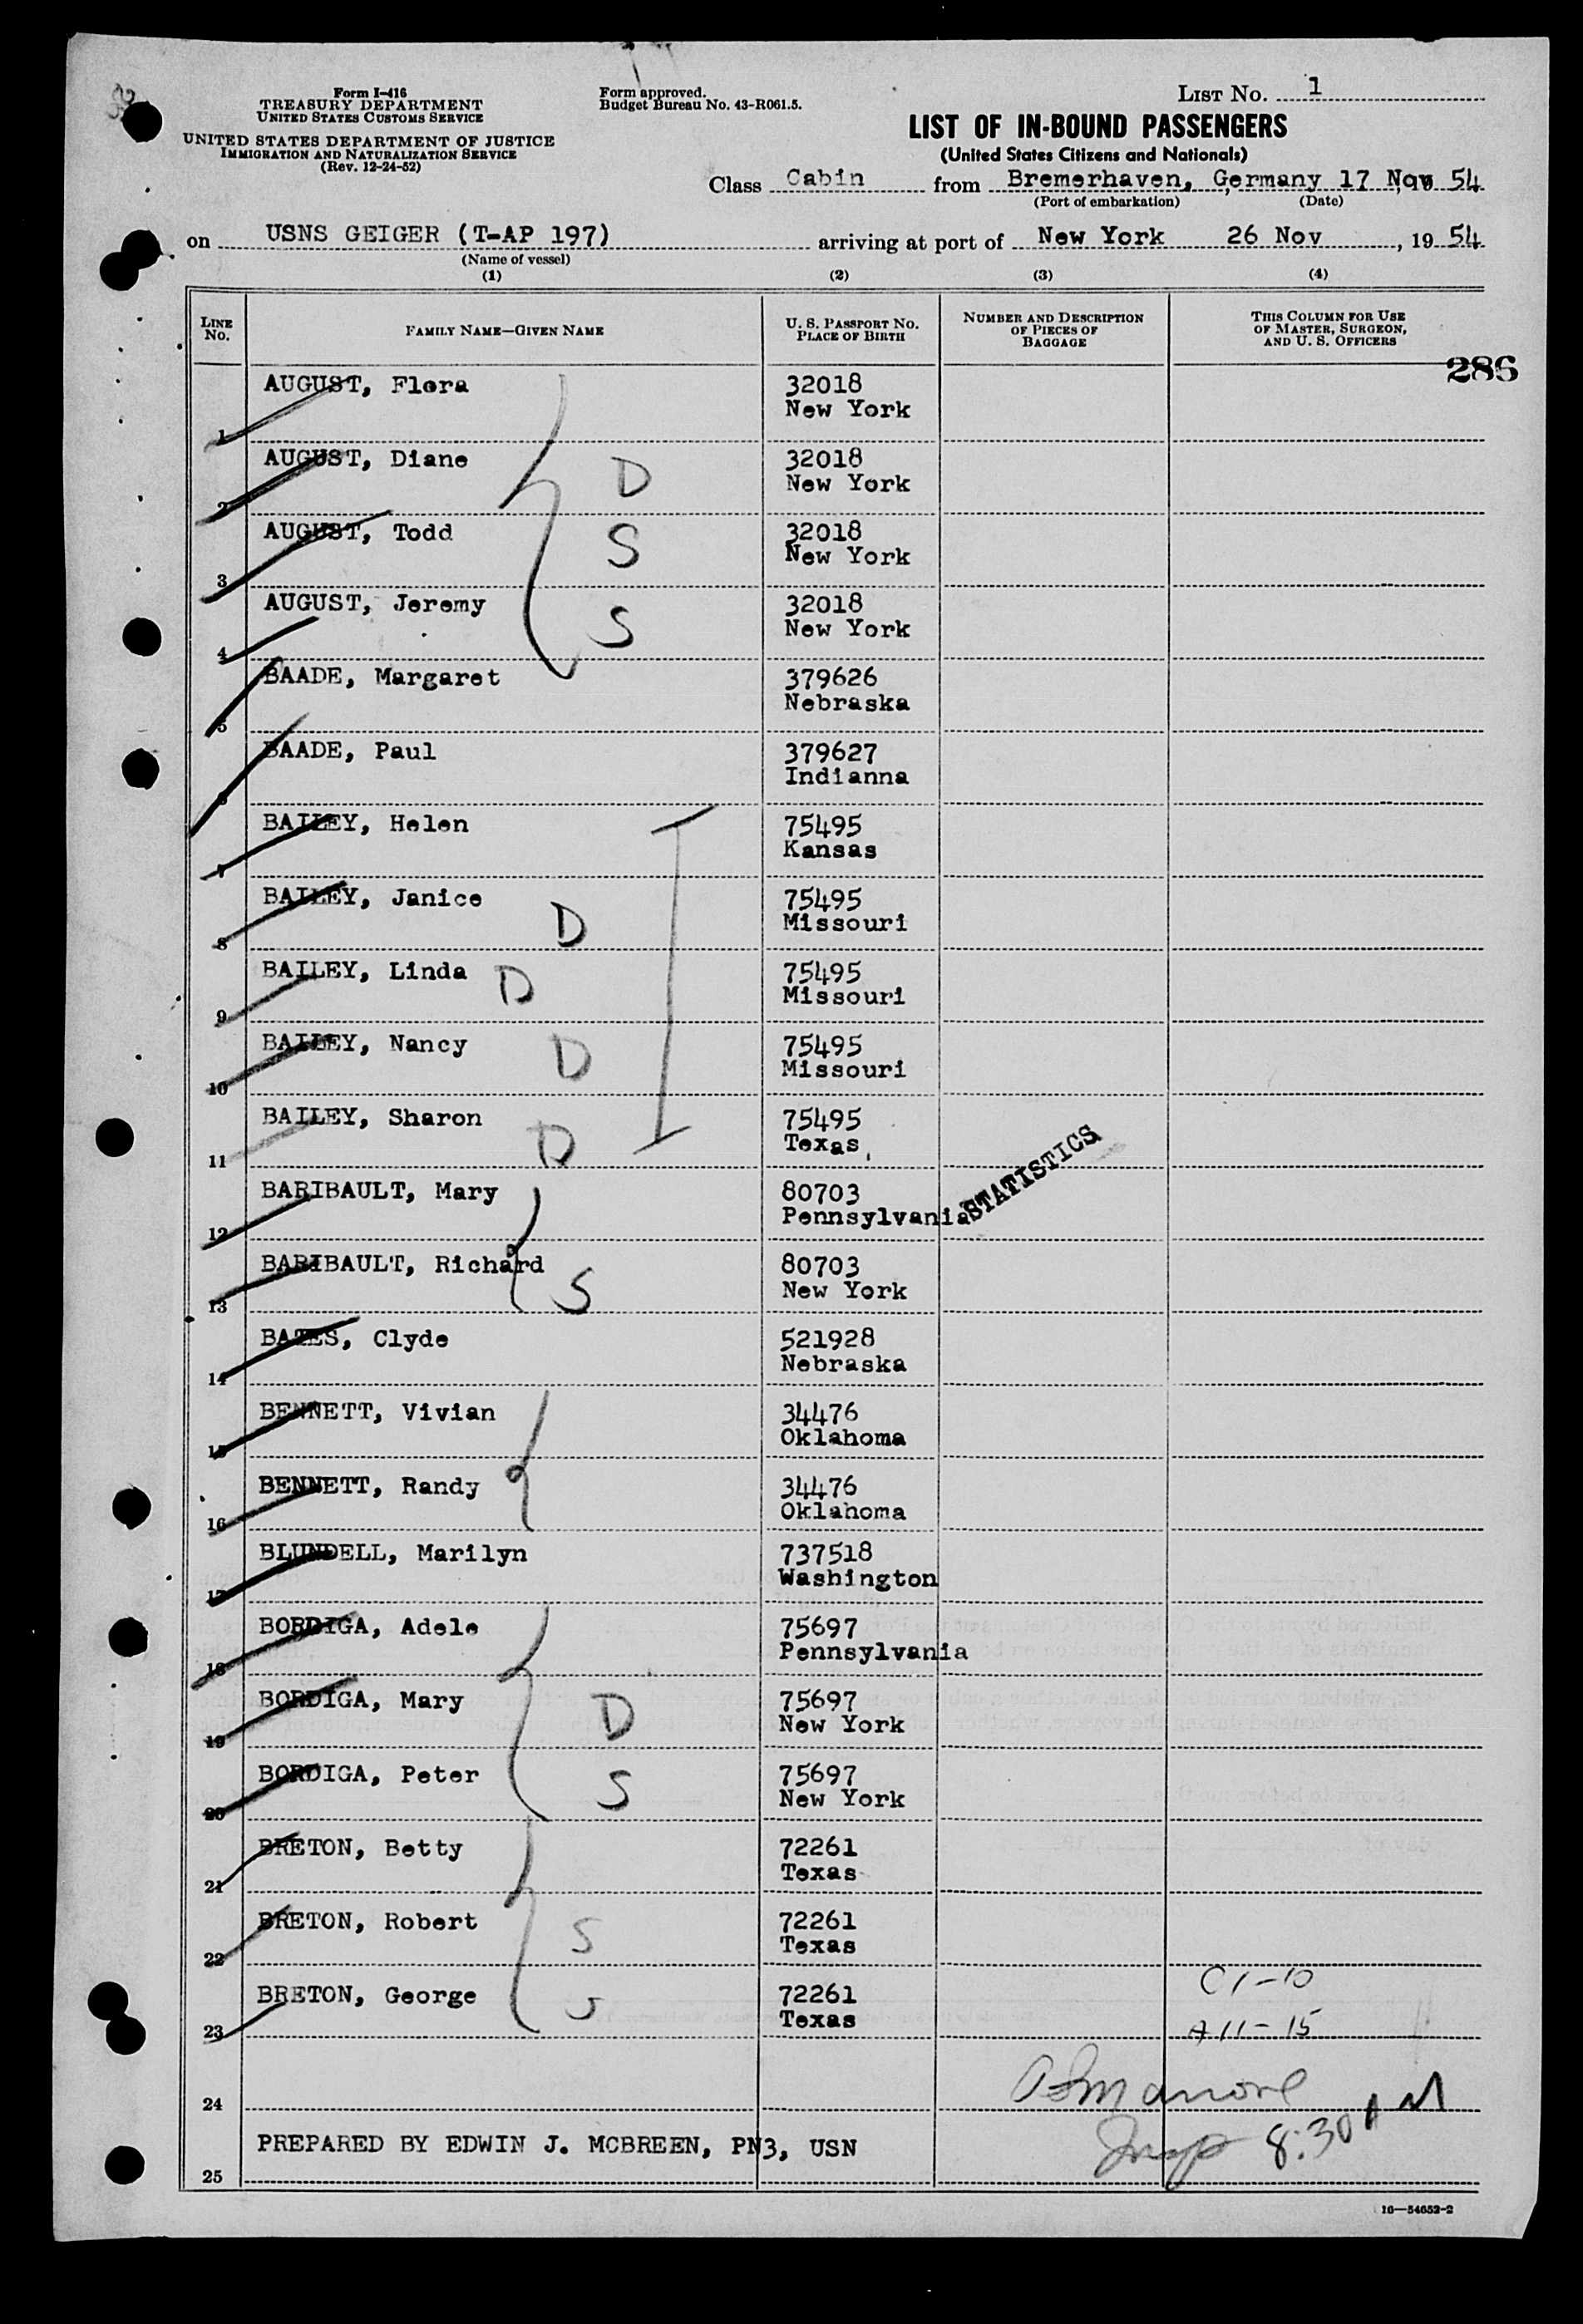 Form I-416
TREASURY DEPARTMENT
UNITED STATES CUSTOMS SERVICE
UNITED STATES DEPARTMENT OF JUSTICE
IMMIGRATION AND NATURALIZATION SERVICE
(Rev. 12-24-52)
Form approved.
Budget Bureau No. 43-R061.5.
LIST No. 1
LIST OF IN-BOUND PASSENGERS
(United States Citizens and Nationals)
Class Cabin from Bremerhaven, Germany 17 Nov 54
(Port of embarkation) (Date)
on USNS GEIGER (T-AP 197) arriving at port of New York 26 Nov, 19 54
(Name of vessel)
(1) (2) (3) (4)
LINE No. FAMILY NAME—GIVEN NAME U. S. PASSPORT No. PLACE OF BIRTH NUMBER AND DESCRIPTION OF PIECES OF BAGGAGE THIS COLUMN FOR USE OF MASTER, SURGEON, AND U. S. OFFICERS
286
AUGUST, Flora 32018
1 New York
AUGUST, Diane 32018
2 D New York
AUGUST, Todd 32018
3 S New York
AUGUST, Jeremy 32018
4 S New York
BAADE, Margaret 379626
5 Nebraska
BAADE, Paul 379627
6 Indianna
BAILEY, Helen 75495
7 Kansas
BAILEY, Janice 75495
8 D Missouri
BAILEY, Linda 75495
9 D Missouri
BAILEY, Nancy 75495
10 D Missouri
BAILEY, Sharon 75495
11 D Texas
STATISTICS
BARIBAULT, Mary 80703
12 Pennsylvania
BARIBAULT, Richard 80703
13 S New York
BATES, Clyde 521928
14 Nebraska
BENNETT, Vivian 34476
15 Oklahoma
BENNETT, Randy 34476
16 Oklahoma
BLUNDELL, Marilyn 737518
17 Washington
BORDIGA, Adele 75697
18 Pennsylvania
BORDIGA, Mary 75697
19 D New York
BORDIGA, Peter 75697
20 S New York
BRETON, Betty 72261
21 Texas
BRETON, Robert 72261
22 S Texas
BRETON, George 72261
23 S Texas
C 1-10
A 11-15
24
Insp 8:30 AM
PREPARED BY EDWIN J. MCBREEN, PN3, USN
25
16—54652-2